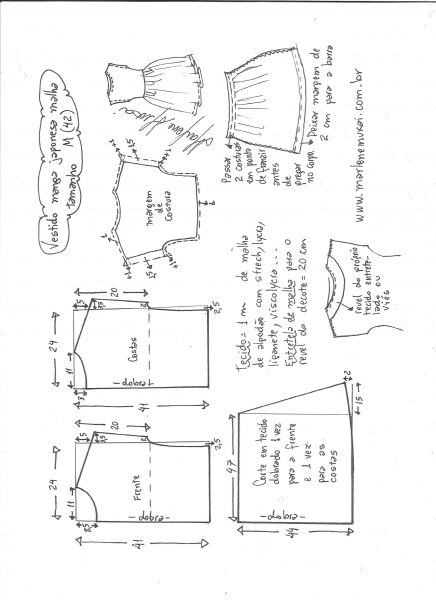 Vestido manga japonesa malha
tamanho M (42)
margem
de
costura
1,5
1,5
1
Passar
2 costuras
em ponto
de franzir
antes
de
pregar
no corpo.
Deixar margem de
2 cm para a barra
www.marlenemukai.com.br
Tecido= 1 m de malha
de algodão com strech, lycra,
liganete, viscolycra...
Entretela de malha para o
revel do decote = 20 cm
revel do próprio
tecido entrete-
lado ou
viés
24
20
11
3
2,5
Costas
dobra
41
24
20
11
8,5
2,5
Frente
dobra
41
47
2
15
Corte em tecido
dobrado 1 vez
para a frente
e 1 vez
para as
costas
dobra
44